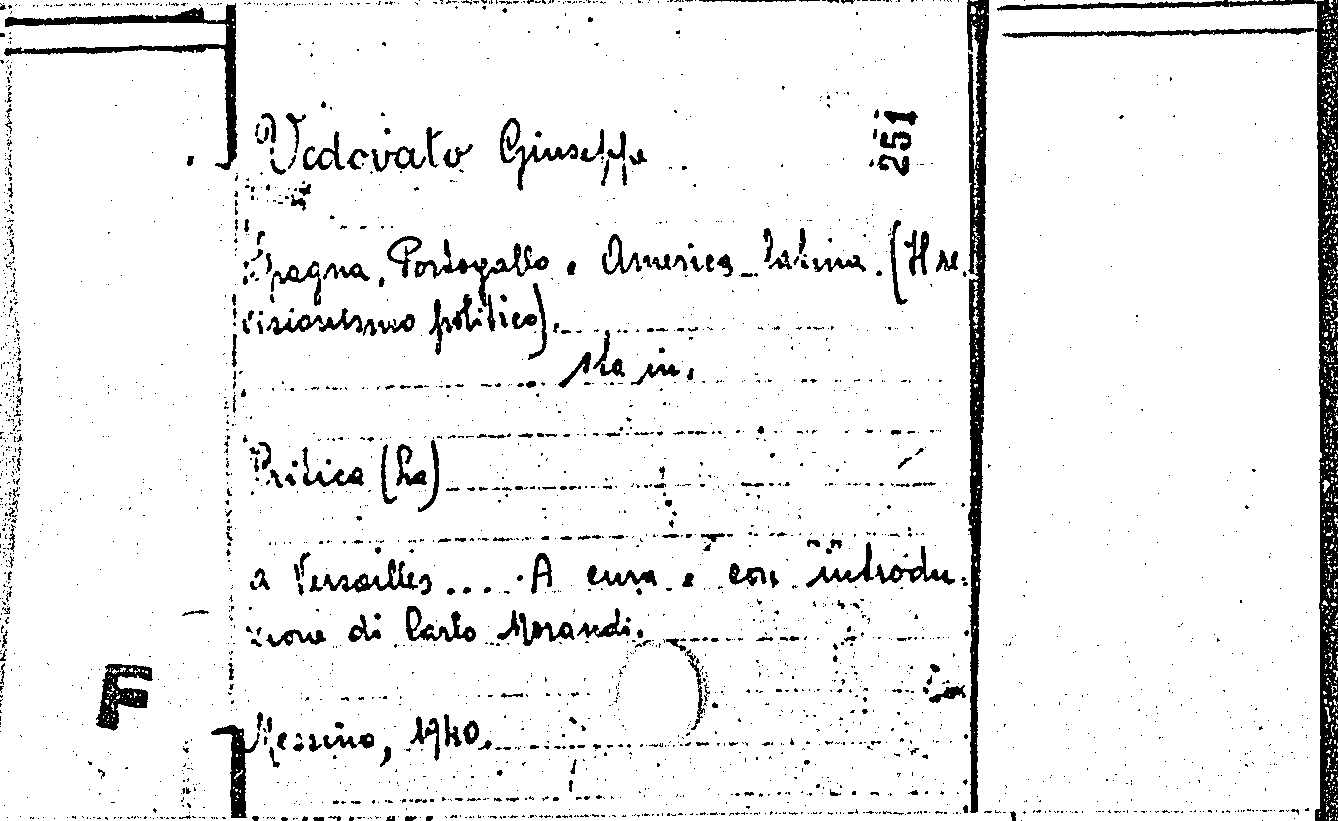 Vedovato Giuseppe
251
Spagna, Portogallo e America latina. (Il re-
visionismo politico).
Sta in:
Critica (La)
a Versailles.... A cura e con introdu-
zione di Carlo Morandi.
F
Messina, 1940.